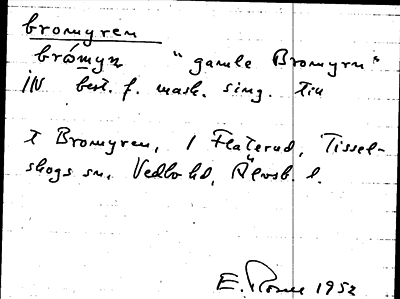 bromyren
brómyn "gamle Bromyrn"
IN best. f. mask. sing. till
t Bromyren, 1 Flaterud, Tissel-
skogs sn. Vedbo hd, Älvsb. l.
E. 1952